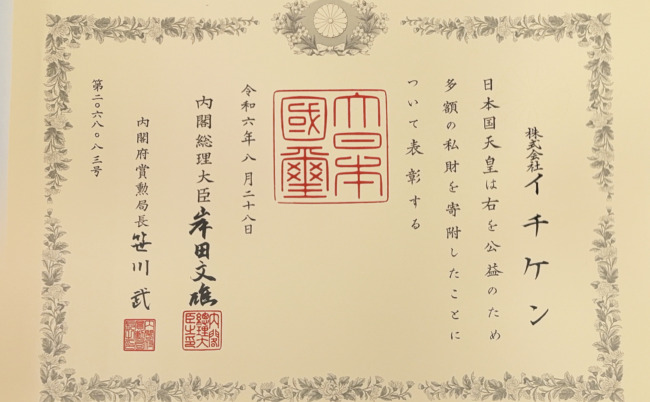 株式会社イチケン
日本国天皇は右を公益のため
多額の私財を寄附したことに
ついて表彰する
大日本國璽
令和六年八月二十八日
内閣総理大臣岸田文雄
内閣総理大臣之印
内閣府賞勲局長笹川武
第二〇六八〇八三号